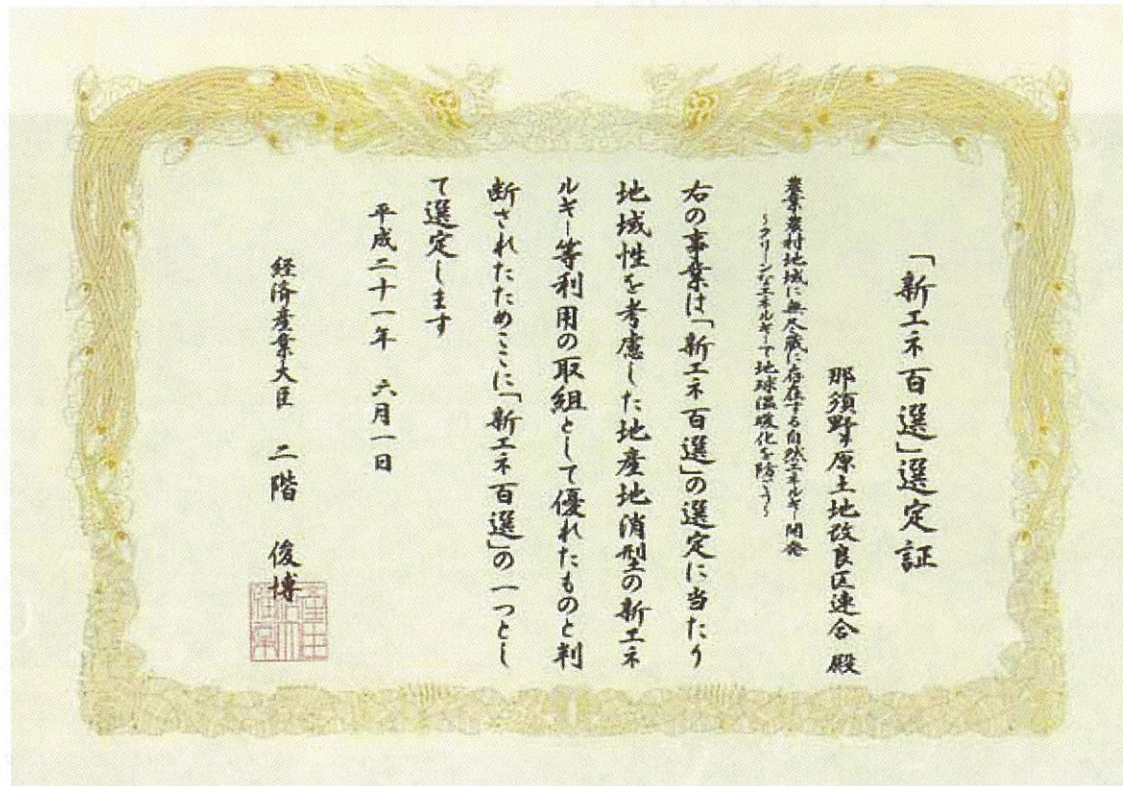 「新エネ百選」選定証
那須野ヶ原土地改良区連合 殿
農業農村地域に無尽蔵に存在する自然エネルギー開発
~クリーンなエネルギーで地球温暖化を防ごう~
右の事業は「新エネ百選」の選定に当たり
地域性を考慮した地産地消型の新エネ
ルギー等利用の取組として優れたものと判
断されたためここに「新エネ百選」の一つとし
て選定します
平成二十一年 六月一日
経済産業大臣 二階 俊博